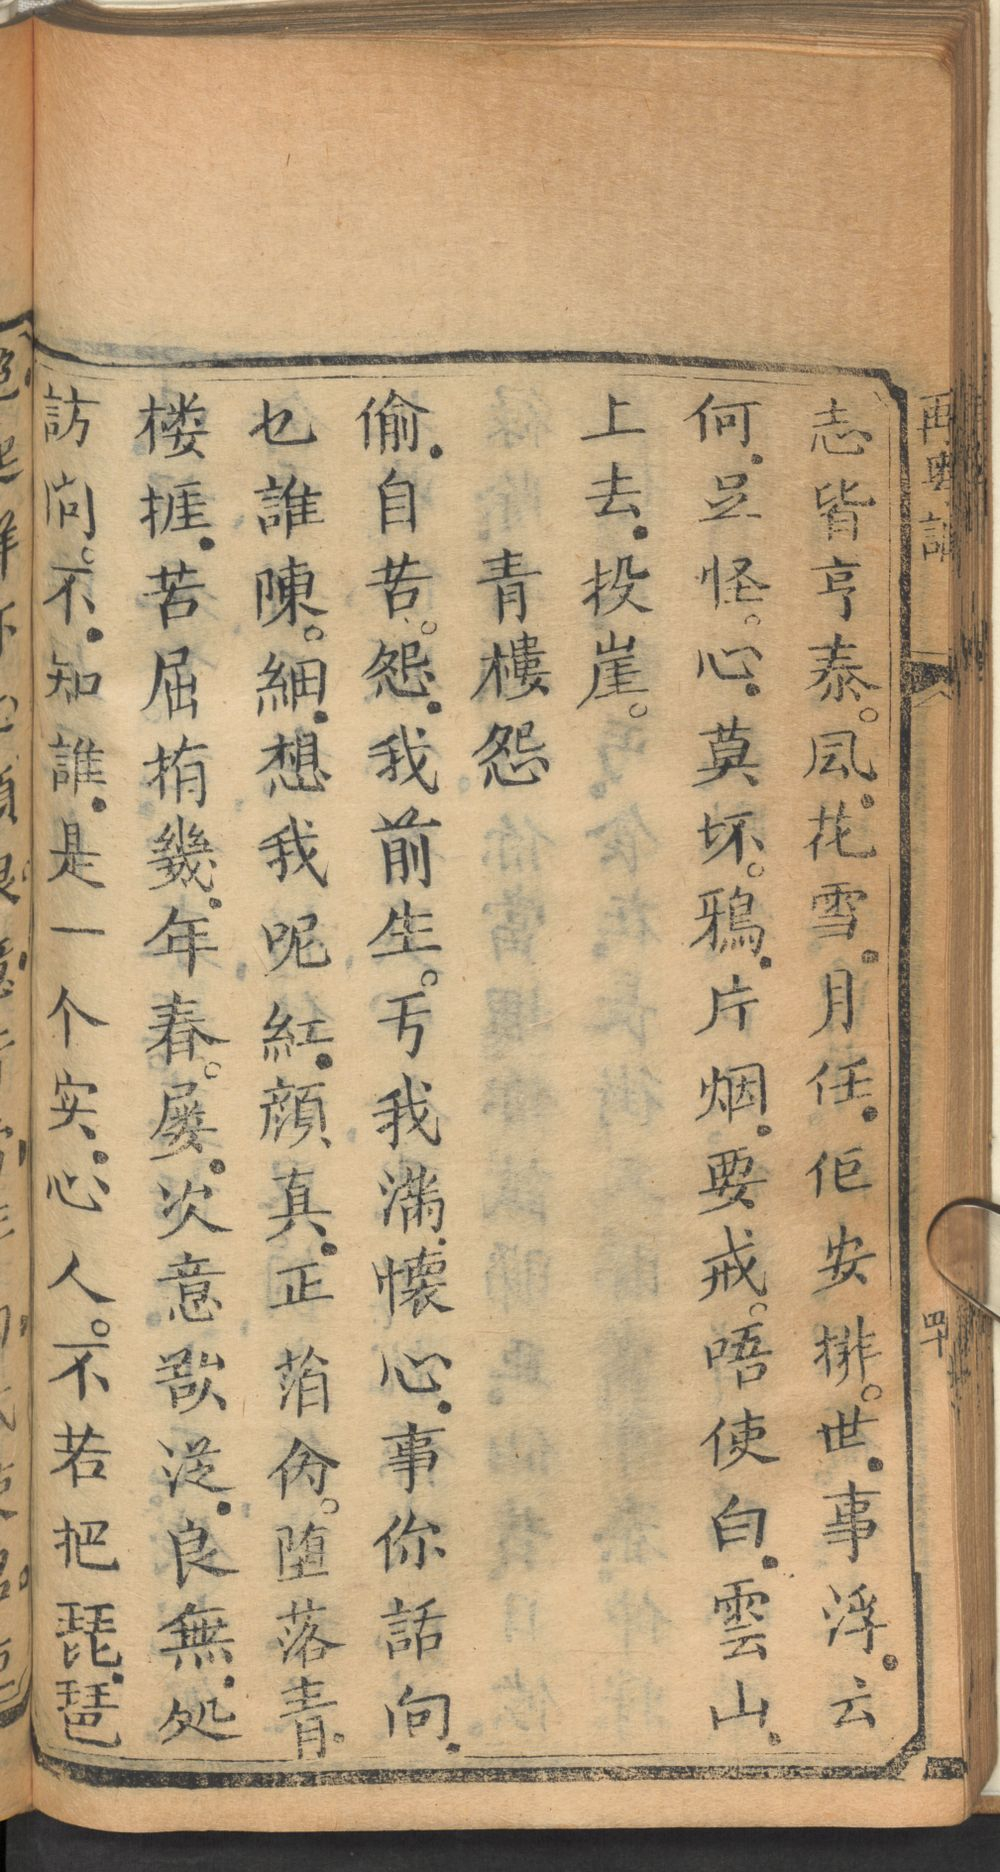 再粵謳
四十
志皆亨泰。凨花雪月任佢安排。世事浮云
何足怪。心莫坏。鴉片烟要戒。唔使白雲山
上去投崖。
青樓怨
偷自苦。怨我前生。亐我满懐心事你話向
乜誰陳。細想我呢紅顔真正萡㑃。堕落青
楼捱苦屈指幾年春。屡次意欲從良無处
訪问。不知誰是一个实心人。不若把琵琶